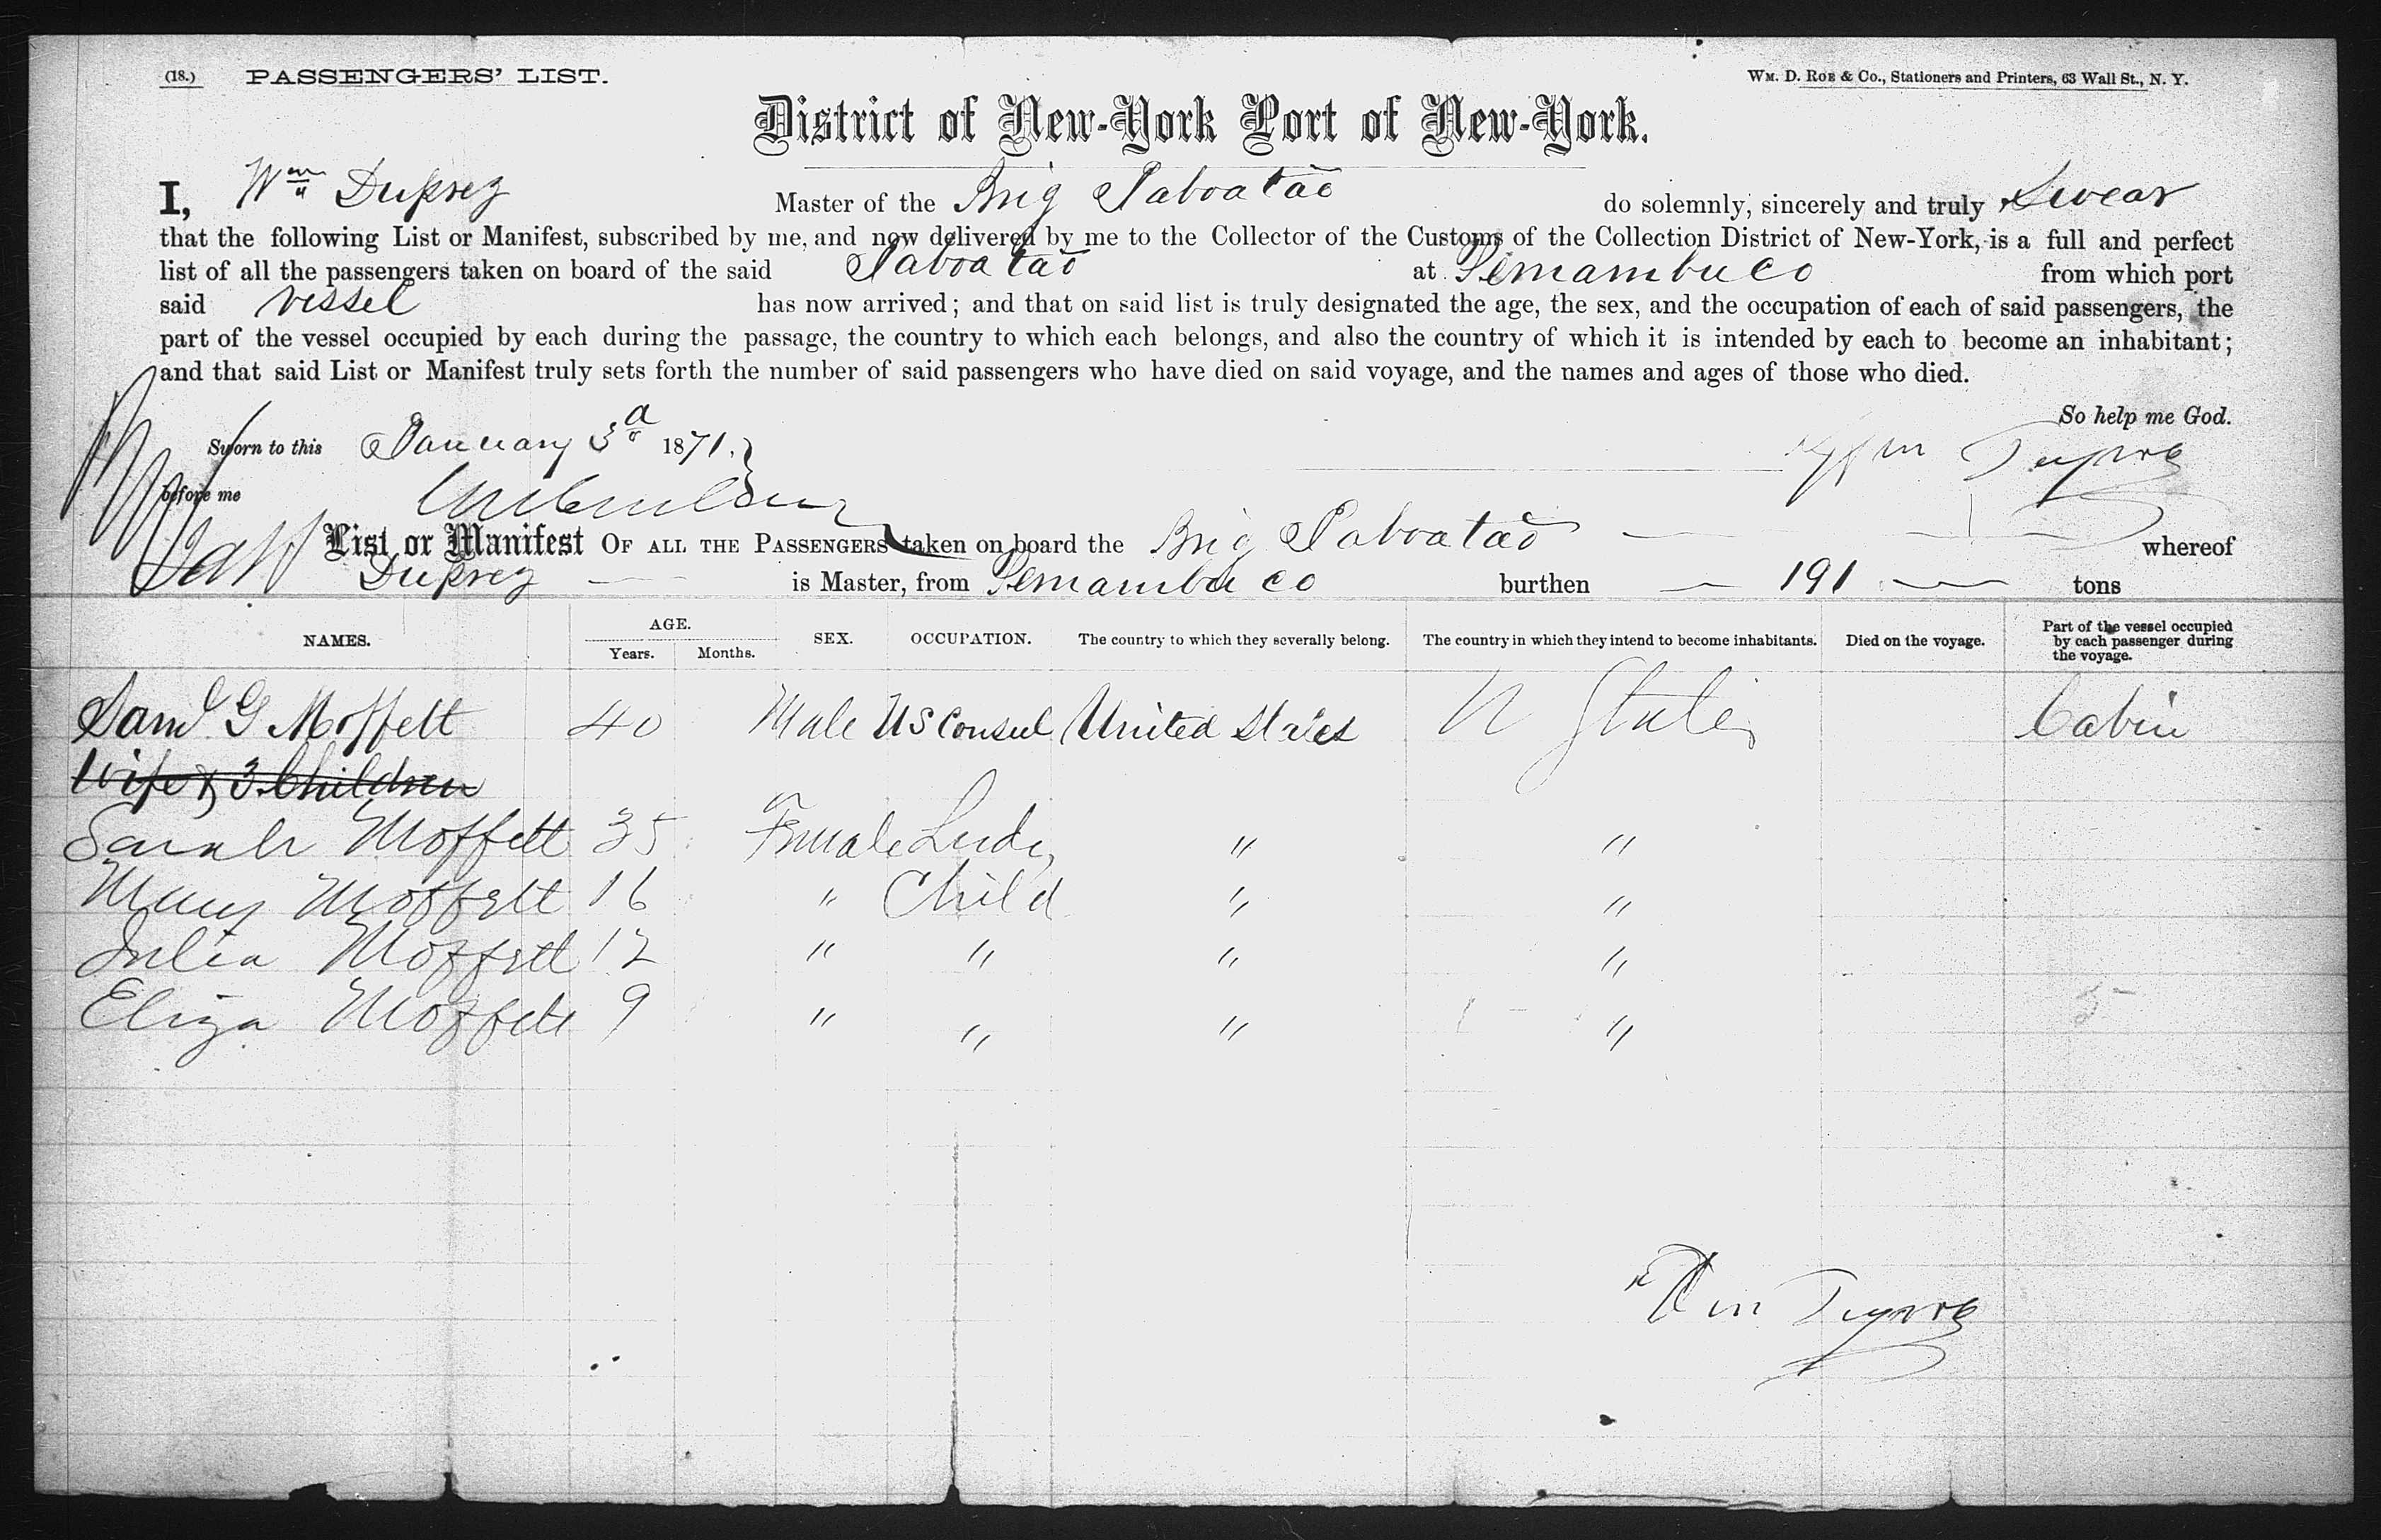 (18.) PASSENGERS' LIST.
Wm. D. Roe & Co., Stationers and Printers, 63 Wall St., N. Y.
District of New-York Port of New-York.
I, Wm Duprey Master of the Brig Jaboataõ do solemnly, sincerely and truly Swear
that the following List or Manifest, subscribed by me, and now delivered by me to the Collector of the Customs of the Collection District of New-York, is a full and perfect
list of all the passengers taken on board of the said Jaboataõ at Pernambuco from which port
said vessel has now arrived; and that on said list is truly designated the age, the sex, and the occupation of each of said passengers, the
part of the vessel occupied by each during the passage, the country to which each belongs, and also the country of which it is intended by each to become an inhabitant;
and that said List or Manifest truly sets forth the number of said passengers who have died on said voyage, and the names and ages of those who died.
So help me God.
Sworn to this January 3d 1871.
before me
List or Manifest OF ALL THE PASSENGERS taken on board the Brig Jaboataõ whereof
Duprey is Master, from Pernambuco burthen 191 tons
NAMES. AGE. Years. Months. SEX. OCCUPATION. The country to which they severally belong. The country in which they intend to become inhabitants. Died on the voyage. Part of the vessel occupied by each passenger during the voyage.
Saml G Moffett 40 Male US Consul United States U States Cabin
Wife & 3 Children
Sarah Moffett 35 Female Lady " "
Mary Moffett 16 " Child " "
Julia Moffett 12 " " " "
Eliza Moffett 9 " " " "